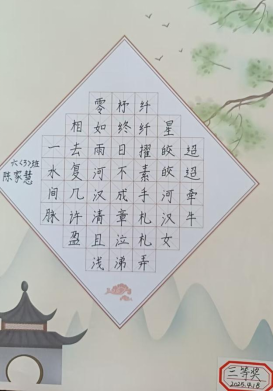 迢迢牵牛
星皎皎河汉女
纤纤擢素手札札弄
杼终日不成章泣涕
零如雨河汉清且浅
相去复几许盈
一水间脉
六(3)班
陈家慧
三等奖
2025.9.18